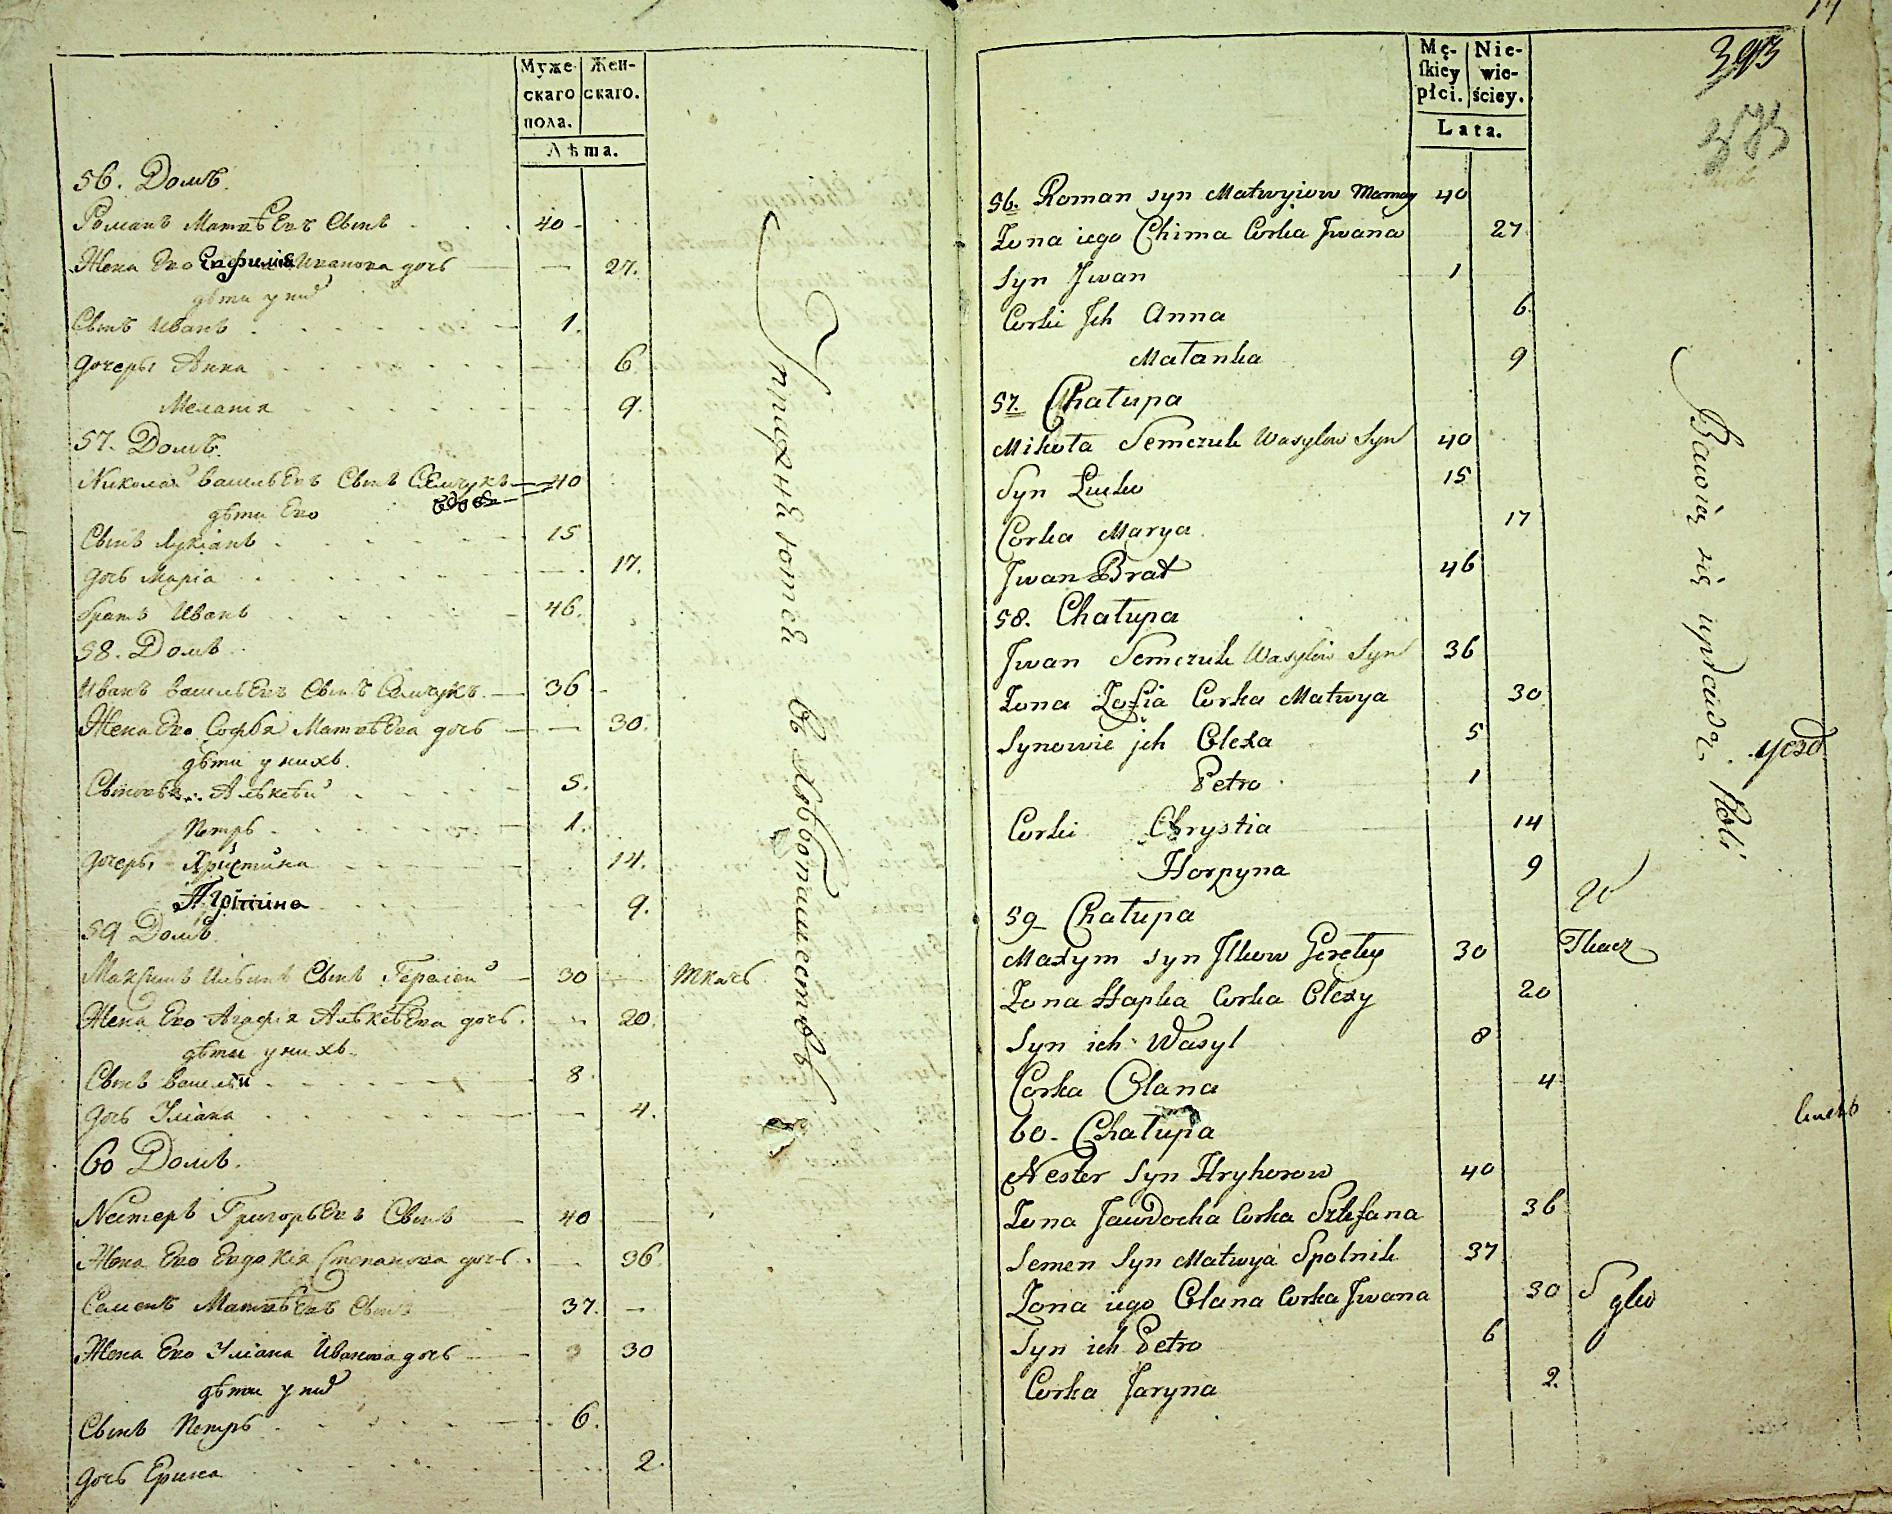 Муже-
скаго
пола.
Жен-
скаго.
Лѣта.
56. Домъ.
Романъ Матвѣевъ Сынъ 40
Жена Его Евфимія Иванова дочь 27.
дѣти у них
Сынъ Иванъ 1.
дочеры Анна 6
Мелания 9.
57. Домъ.
Николай Васильевъ Сынъ Семчукъ 40
вдовъ
дѣти Его
Сынъ Лукіанъ 15
дочь Марія 17.
братъ Иванъ 46.
58. Домъ
Иванъ Васильевъ Сынъ Семчукъ 36
Жена Его Софья Матвѣева дочь 30.
дѣти у нихъ.
Сыновья Алѣксѣй 5.
Петръ 1.
дочеры Христина 14.
9.
59 Домъ
Максимъ Ильинъ Сынъ 30 ткачъ
Жена Его Агафія Алѣксѣева дочь. 20.
дѣти у нихъ.
Сынъ Василій 8
дочь Уліана 4.
60 Домъ.
Нестеръ Григорьевъ Сынъ 40
Жена Его Евдокія Степанова дочь. 36
Семенъ Матвѣевъ Сынъ 37.
Жена Его Уліана Иванова дочь 30
дѣти у них
Сынъ Петръ 6.
дочь Ерина 2.
Упражняютса въ хлѣбопашествѣ
393
373
Mę-
skiey
płci.
Nie-
wie-
ściey.
Lata.
56. Roman syn Matwyiow 40
Żona iego Chima Corka Jwana 27
Syn Jwan 1
Corki Jch Anna 6
Małanka 9
57. Chałupa
Mikoła Semczuk Wasylow Syn 40
Syn Łucko 15
Corka Marya 17
Jwan Brat 46
58. Chałupa
Jwan Semczuk Wasylow Syn 36
Żona Zofia Corka Matwya 30
Synowie jch Olexa 5
Petro 1
Corki Chrystia 14
Horpyna 9
59 Chałupa
Maxym syn Jlkow 30 Tkacz
Żona Hapka Corka Olexy 20
Syn ich Wasyl 8
Corka Olana 4
60. Chałupa
Nester Syn Hryhorow 40
Żona Jawdocha Corka Sztefana 36
Semen Syn Matwya Spolnik 37
Żona iego Olana Corka Jwana 30
Syn ich Petro 6
Corka Jaryna 2.
Bawią się uprawą Roli